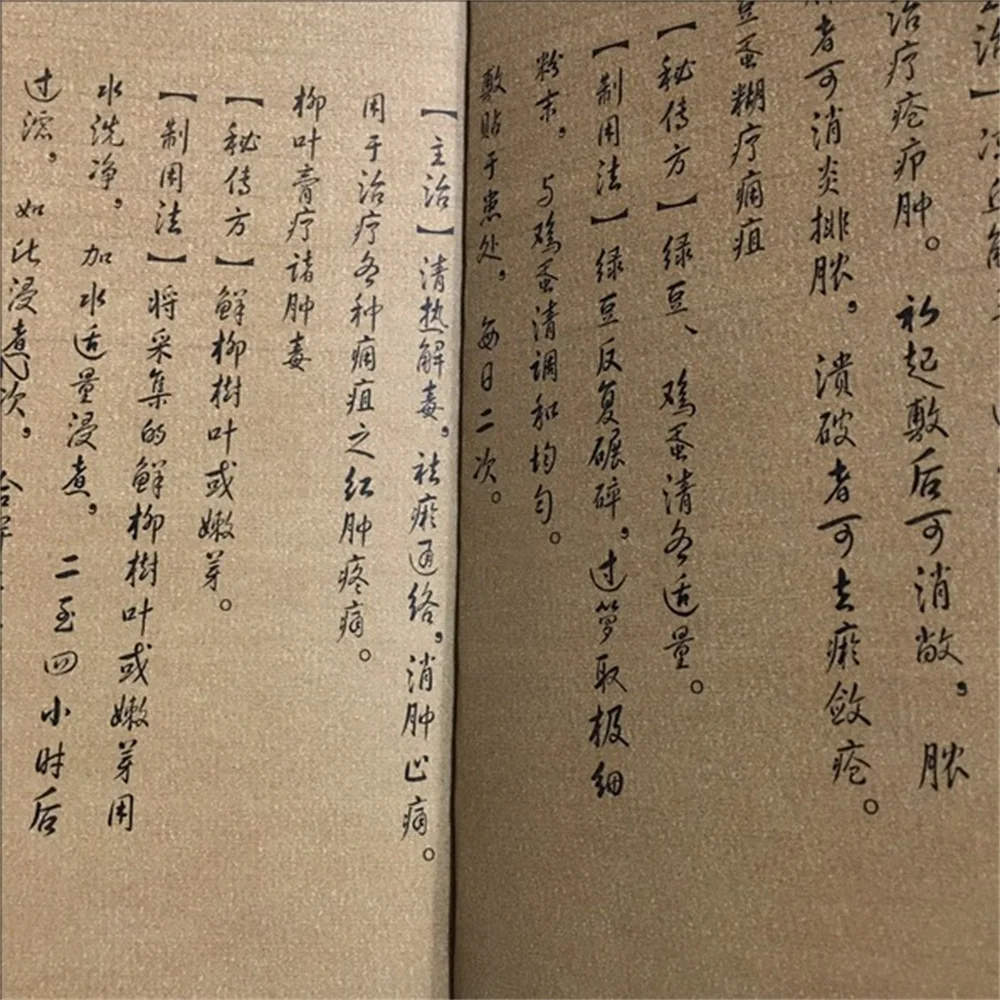 治】
治疗疮疖肿。初起敷后可消散，脓
者可消炎排脓，溃破者可去瘀敛疮。
豆蛋糊疗痈疽
【秘传方】绿豆、鸡蛋清各适量。
【制用法】绿豆反复碾碎，过箩取极细
粉末，与鸡蛋清调和均匀。
敷贴于患处，每日二次。
【主治】清热解毒，祛瘀通络，消肿止痛。
用于治疗各种痈疽之红肿疼痛。
柳叶膏疗诸肿毒
【秘传方】鲜柳樹叶或嫩芽。
【制用法】将采集的鲜柳樹叶或嫩芽用
水洗净，加水适量浸煮，二至四小时后
过滤，如此浸煮次，